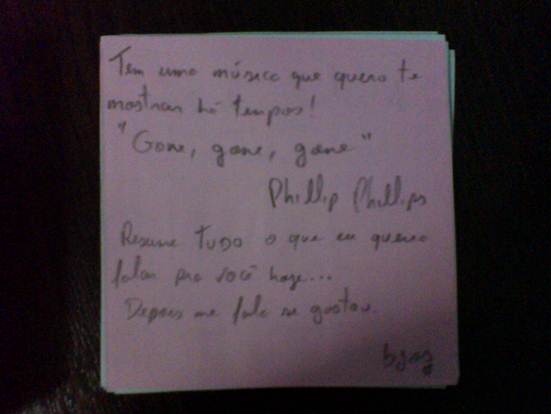 Tem uma música que quero te
mostrar há tempos!
"Gone, gone, gone"
Phillip Phillips
Resume TUDO o que eu quero
falar pra você hoje...
Depois me fala se gostou.
bjos